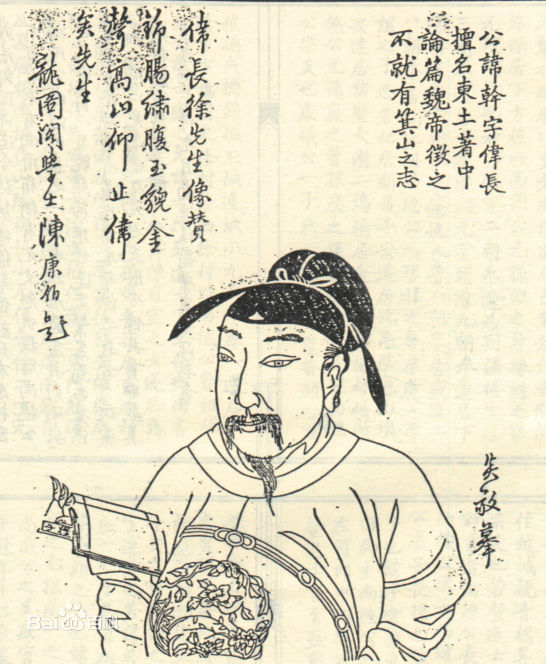 公諱幹字偉長
擅名東土著中
論篇魏帝徵之
不就有箕山之志
偉長徐先生像贊
錦腸繡腹玉貌金
聲高山仰止偉
矣先生
龍圖閣學士陳康伯題
Bai 百科